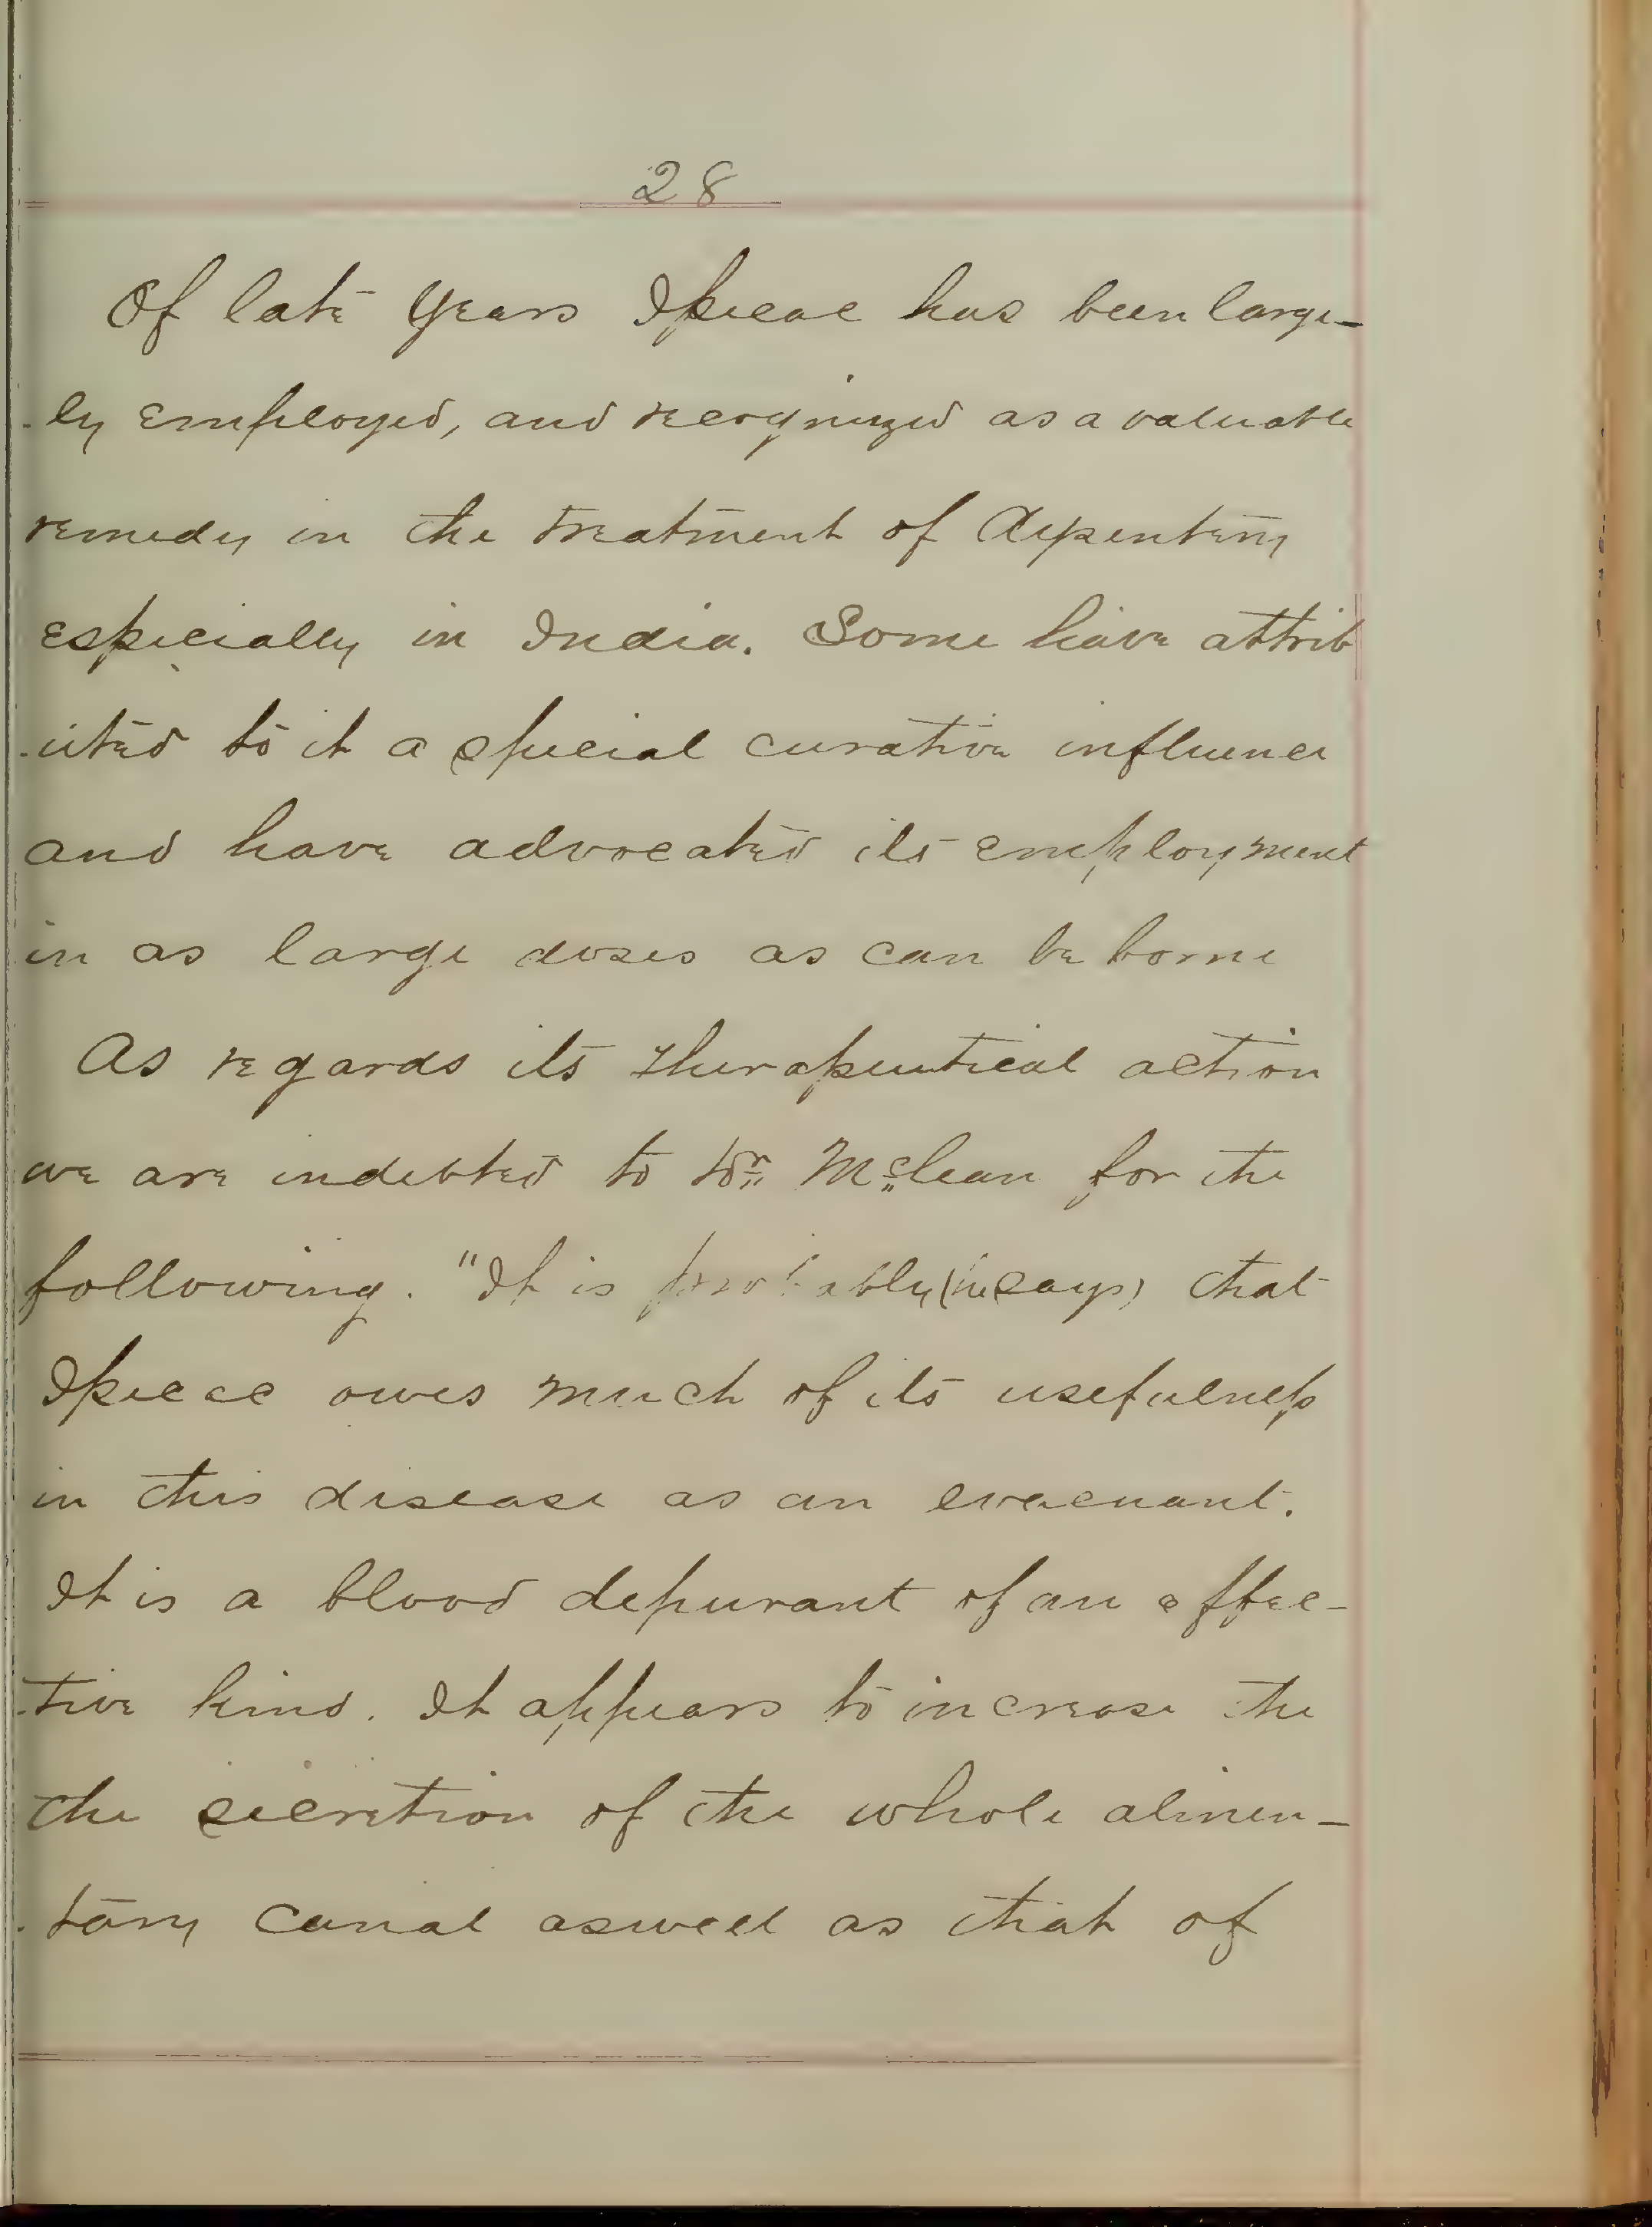 28
Of late years Ipecac has been large-
-ly employed, and recognized as a valuable
remedy in the treatment of dysentery
especially in India. Some have attrib
-uted to it a special curative influence
and have advocated its employment
in as large doses as can be borne
As regards its therapeutical action
we are indebted to Dr. McLean for the
following. "It is probably (he says) that
Ipecac owes much of its usefulness
in this disease as an evacuant.
It is a blood depurant of an effec-
-tive kind. It appears to increase the
the secretion of the whole alimen-
-tary canal aswell as that of